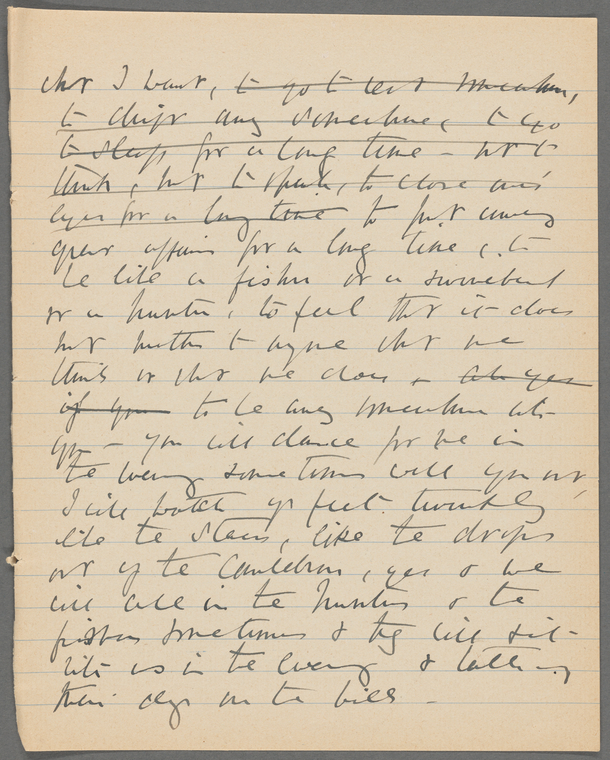 what I want, to go to rest somewhere,
to drift away somewhere, to go
to sleep for a long time - not to
think, not to speak, to close one's
eyes for a long time to put away
great affairs for a long time & to
be like a fisher or a swineherd
or a hunter, to feel that it does
not matter to anyone what one
thinks or what one does, ah yes
if you to be away somewhere with
you - you will dance for me in
the evening sometimes will you not,
I will watch yr feet twinkling
like the stars, like the drops
out of the Cauldron, yes & we
will call in the hunters & the
fishers sometimes & they will sit
with us in the evening &
their days on the hills -